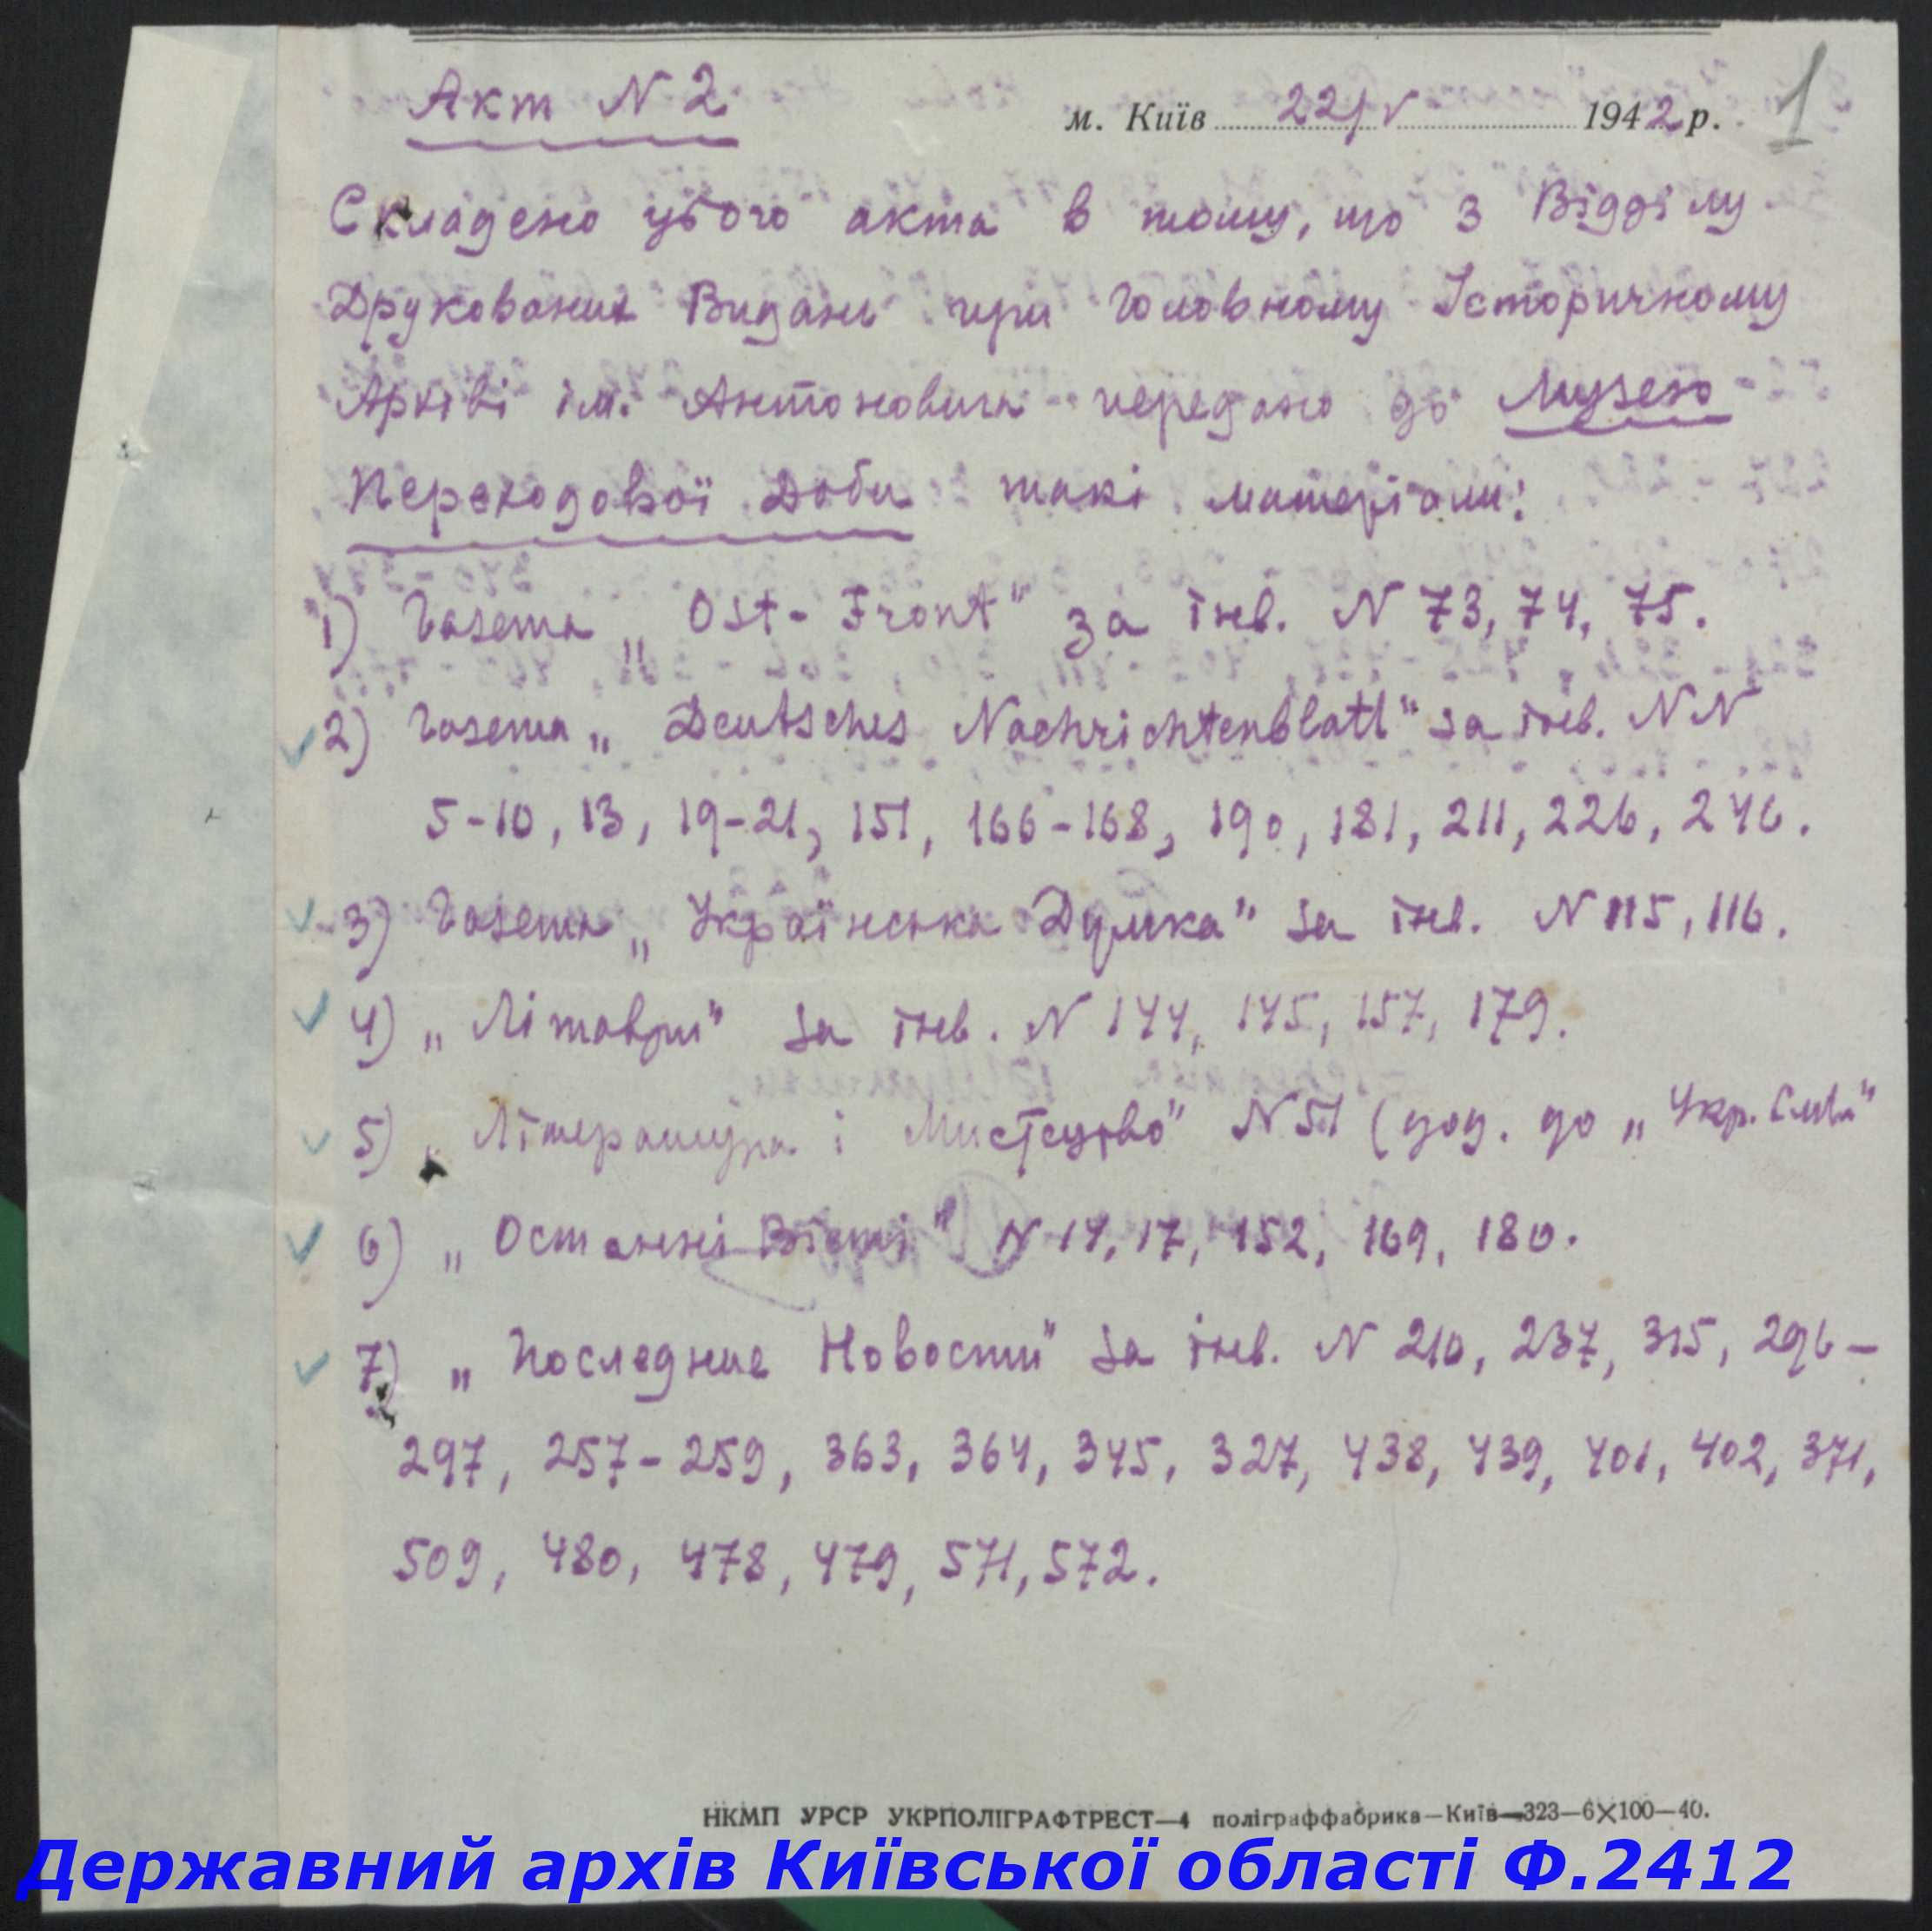 Акт N 2.
м. Київ 22/V 1942 р. 1
Складено цього акта в тому, що з Відділу
Друкованих Видань при Головному Історичному
Архіві ім. Антоновича передано до Музею
Переходової Доби такі матеріали:
1) Газета „Ost-Front" за інв. N 73, 74, 75.
2) Газета „Deutsches Nachrichtenblatt" за інв. NN
5-10, 13, 19-21, 151, 166-168, 190, 181, 211, 226, 246.
3) Газета „Українська Думка" за інв. N 115, 116.
4) „Літаври" за інв. N 144, 145, 157, 179.
5) „Література і Мистецтво" N 51 (дод. до „Укр. Слова"
6) „Останні Вісті" N 14, 17, 152, 169, 180.
7) „Последние Новости" за інв. N 210, 237, 315, 296–
297, 257-259, 363, 364, 345, 327, 438, 439, 401, 402, 371,
509, 480, 478, 479, 571, 572.
НКМП УРСР УКРПОЛІГРАФТРЕСТ—4 поліграффабрика—Київ—323—6×100—40.
Державний архів Київської області Ф.2412